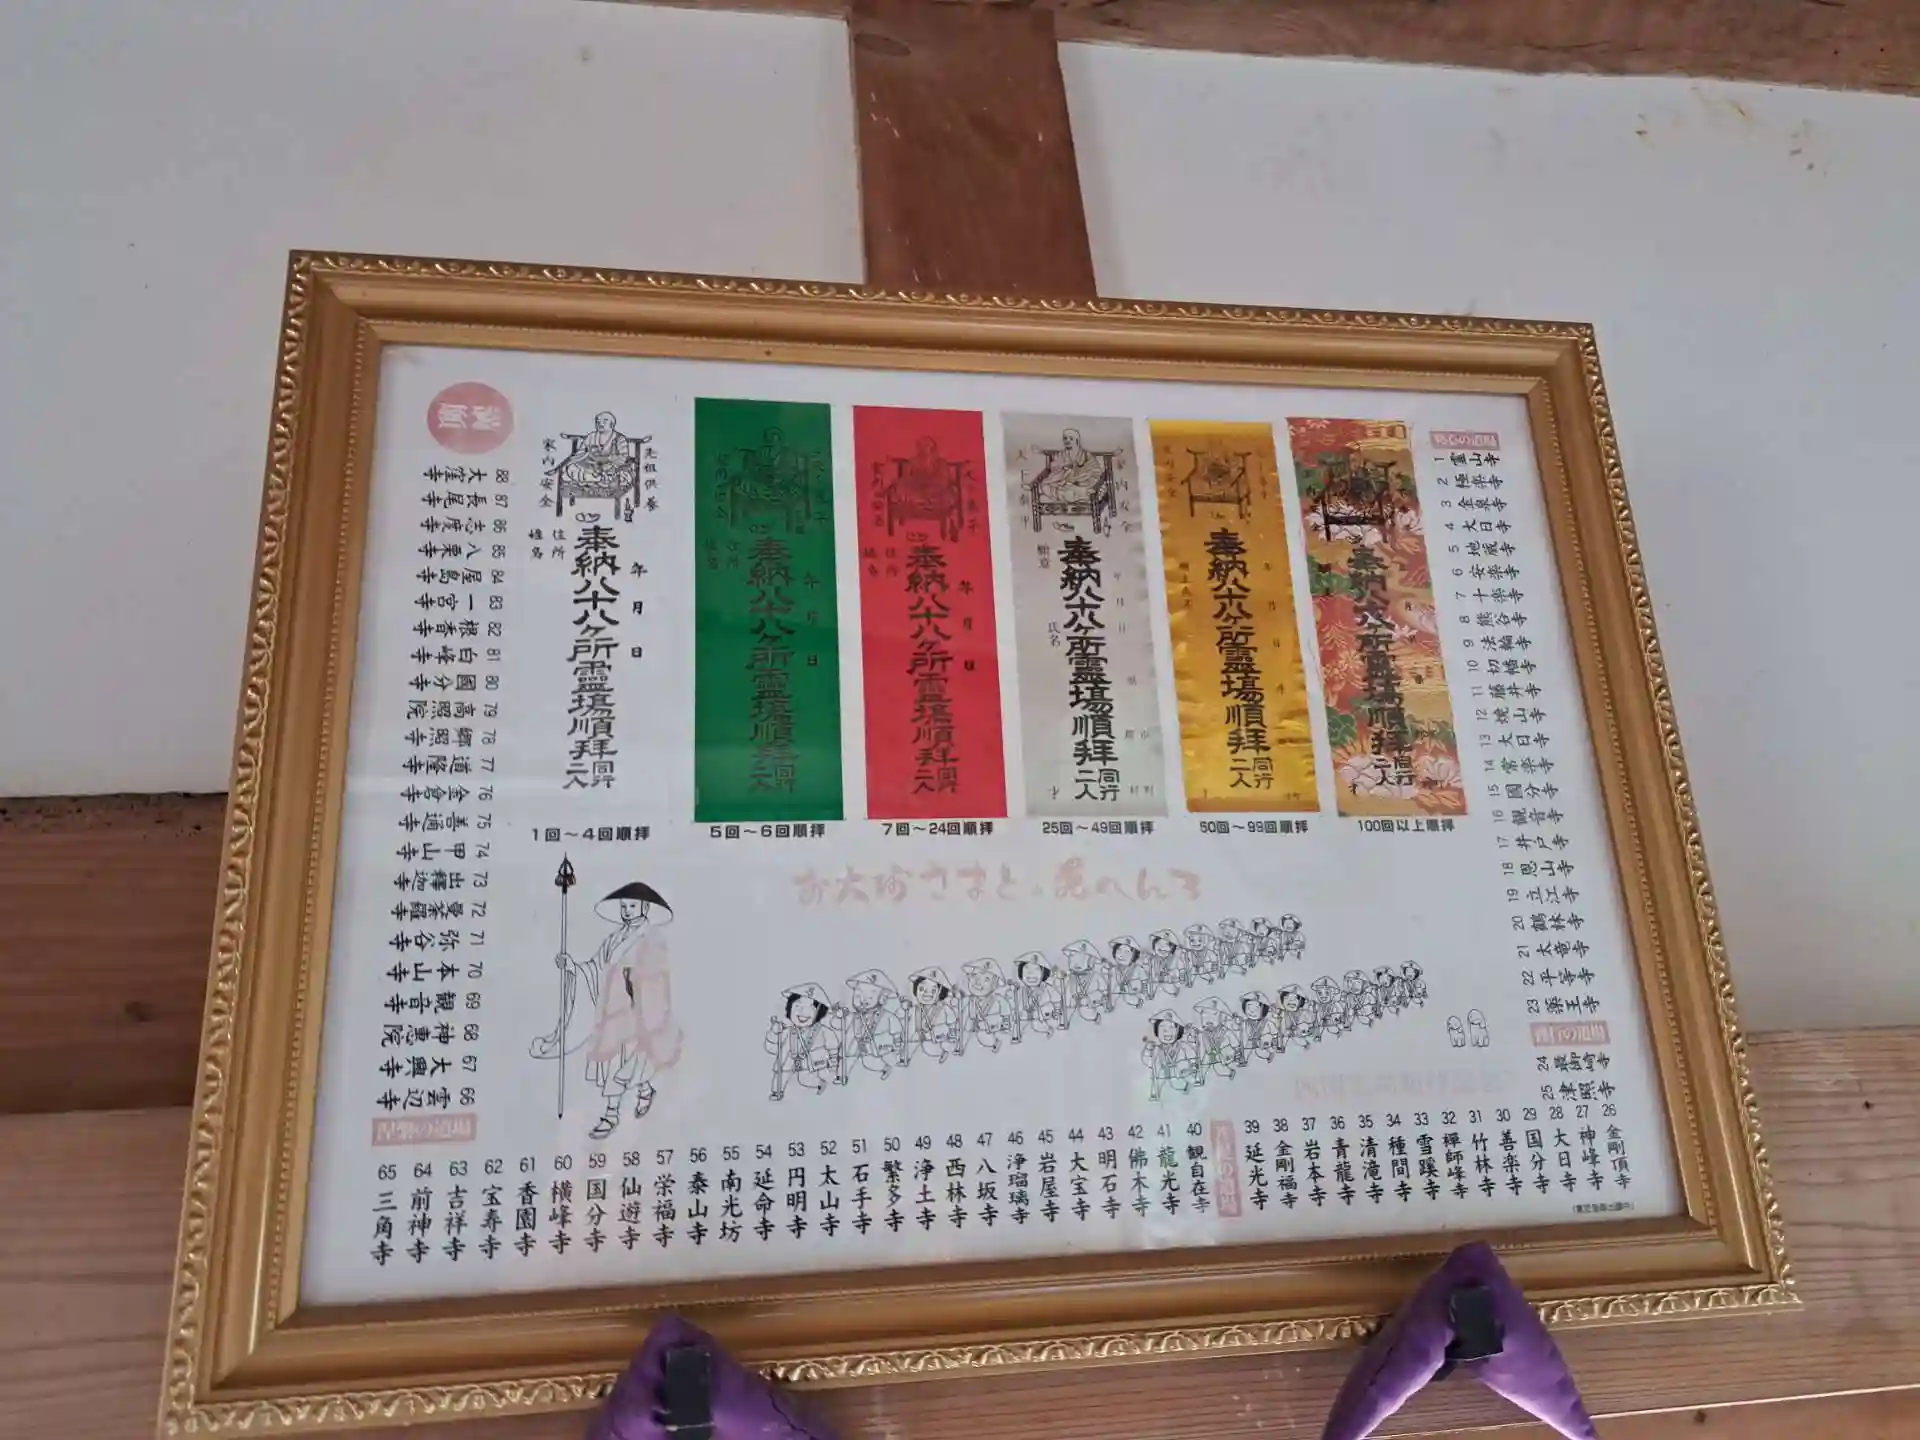 満願
先祖供養
家内安全
奉納八十八ヶ所霊場順拝
同行二人
年月日
住所
1回～4回順拝
奉納八十八ヶ所霊場順拝
同行二人
年月日
5回～6回順拝
奉納八十八ヶ所霊場順拝
同行二人
年月日
7回～24回順拝
家内安全
奉納八十八ヶ所靈場順拝
同行二人
氏名
25回～49回順拝
奉納八十八ヶ所靈場順拝
同行二人
50回～99回順拝
奉納八十八ヶ所靈場順拝
同行二人
100回以上順拝
お大師さまと
発心の道場
1 霊山寺
2 極楽寺
3 金泉寺
4 大日寺
5 地蔵寺
6 安楽寺
7 十楽寺
8 熊谷寺
9 法輪寺
10 切幡寺
11 藤井寺
12 焼山寺
13 大日寺
14 常楽寺
15 國分寺
16 観音寺
17 井戸寺
18 恩山寺
19 立江寺
20 鶴林寺
21 太竜寺
22 平等寺
23 薬王寺
修行の道場
24 最御崎寺
25 津照寺
26 金剛頂寺
27 神峰寺
28 大日寺
29 国分寺
30 善楽寺
31 竹林寺
32 禅師峰寺
33 雪蹊寺
34 種間寺
35 清滝寺
36 青龍寺
37 岩本寺
38 金剛福寺
39 延光寺
菩提の道場
40 観自在寺
41 龍光寺
42 佛木寺
43 明石寺
44 大宝寺
45 岩屋寺
46 浄瑠璃寺
47 八坂寺
48 西林寺
49 浄土寺
50 繁多寺
51 石手寺
52 太山寺
53 円明寺
54 延命寺
55 南光坊
56 泰山寺
57 栄福寺
58 仙遊寺
59 国分寺
60 横峰寺
61 香園寺
62 宝寿寺
63 吉祥寺
64 前神寺
65 三角寺
涅槃の道場
66 雲辺寺
67 大興寺
68 神恵院
69 観音寺
70 本山寺
71 弥谷寺
72 曼荼羅寺
73 出釋迦寺
74 甲山寺
75 善通寺
76 金倉寺
77 道隆寺
78 郷照寺
79 高照院
80 國分寺
81 白峰寺
82 根香寺
83 一宮寺
84 屋島寺
85 八栗寺
86 志度寺
87 長尾寺
88 大窪寺